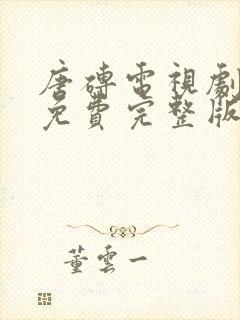 唐磚電視劇
免費完整版
董雲一